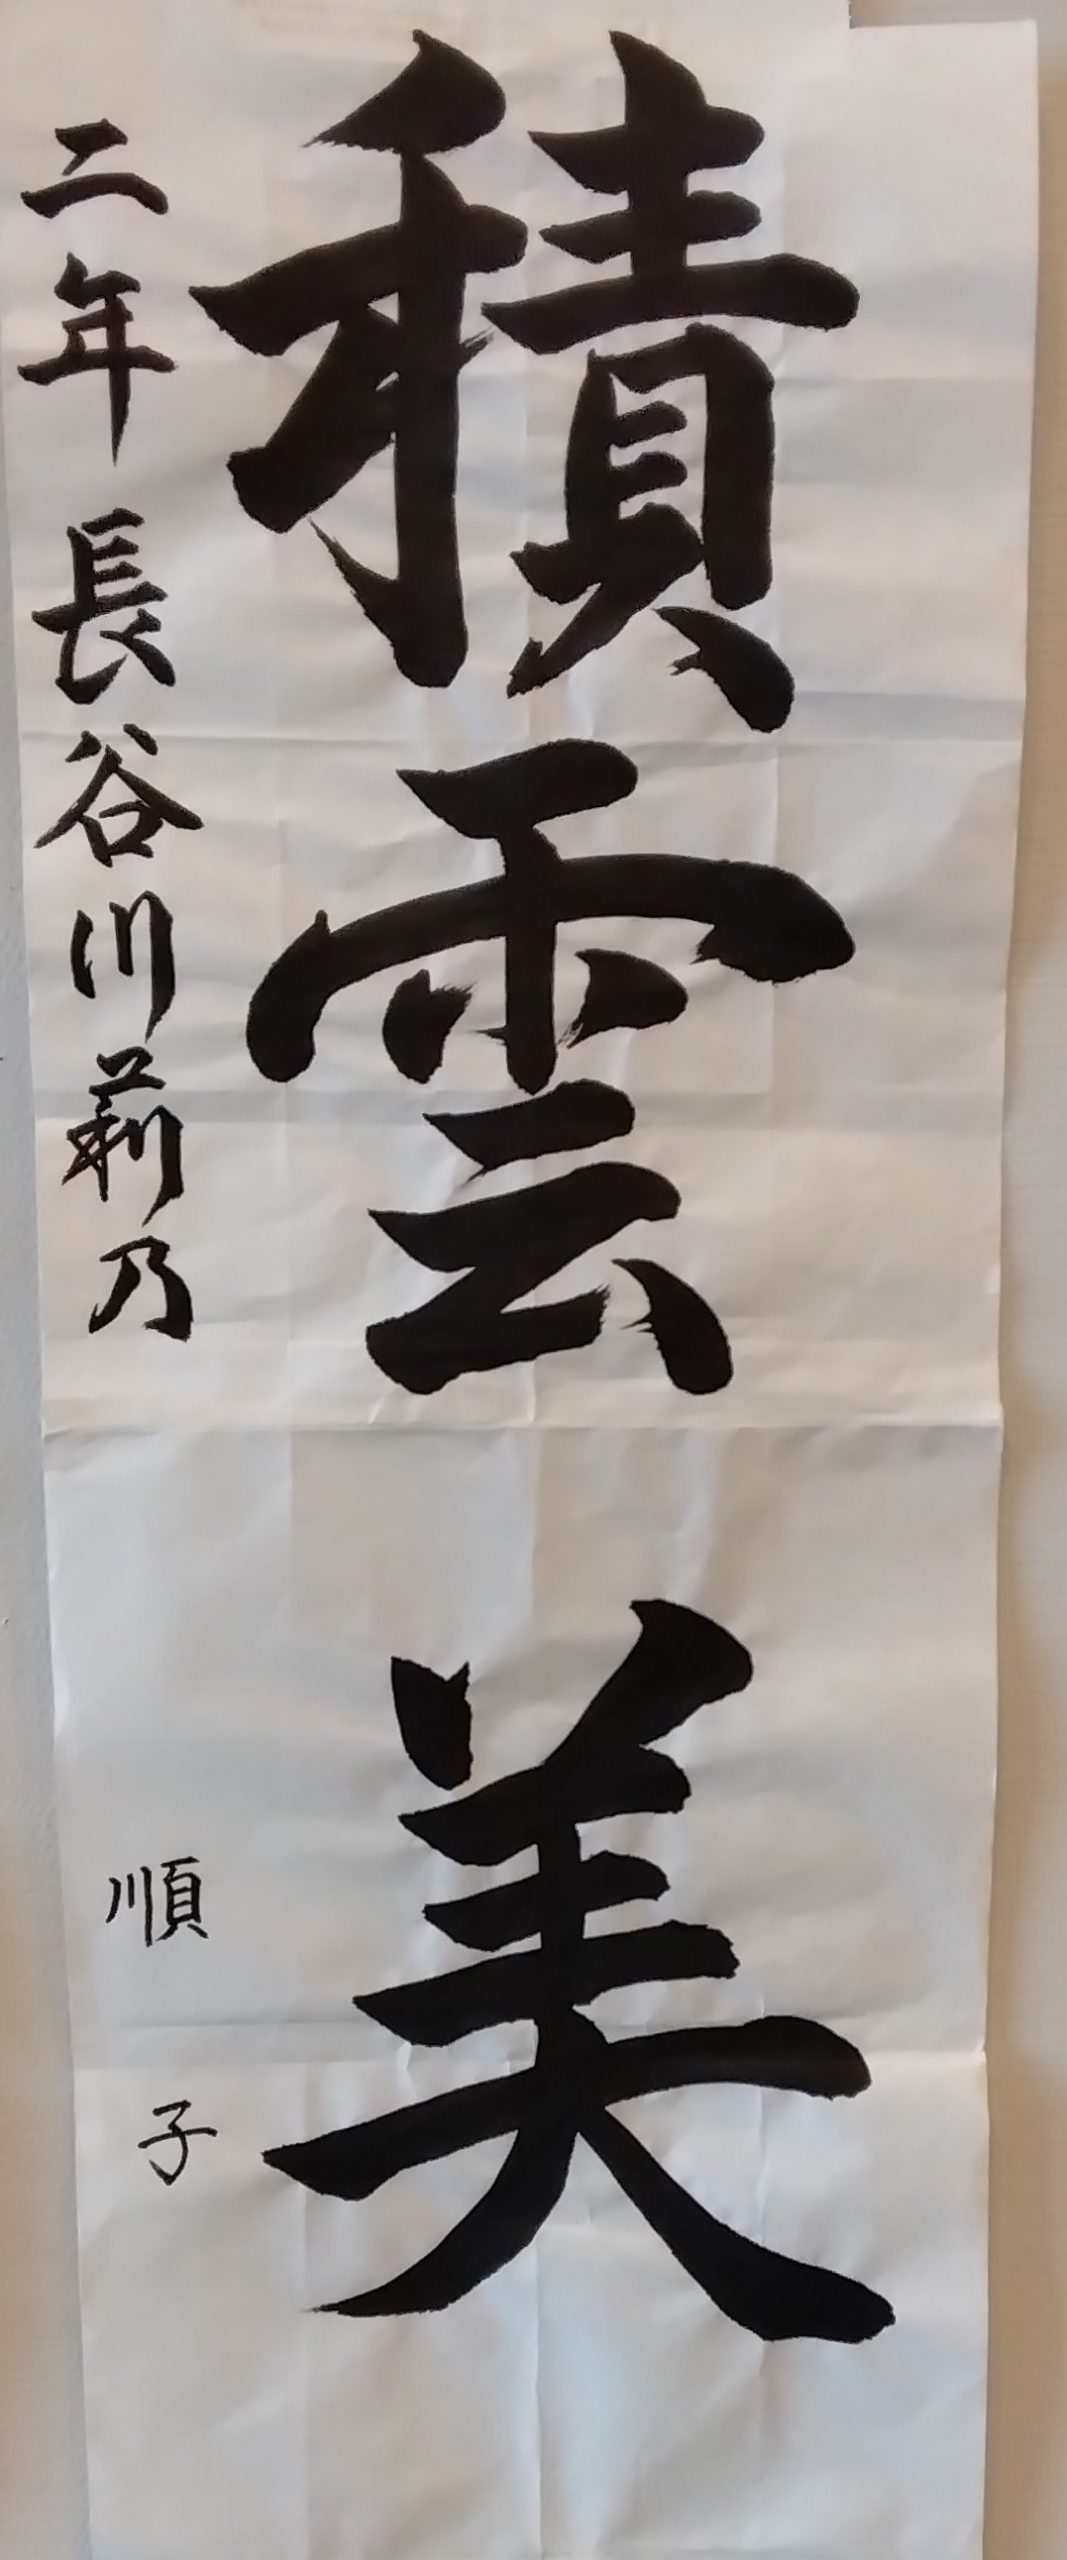 積雲美
二年長谷川莉乃
順子